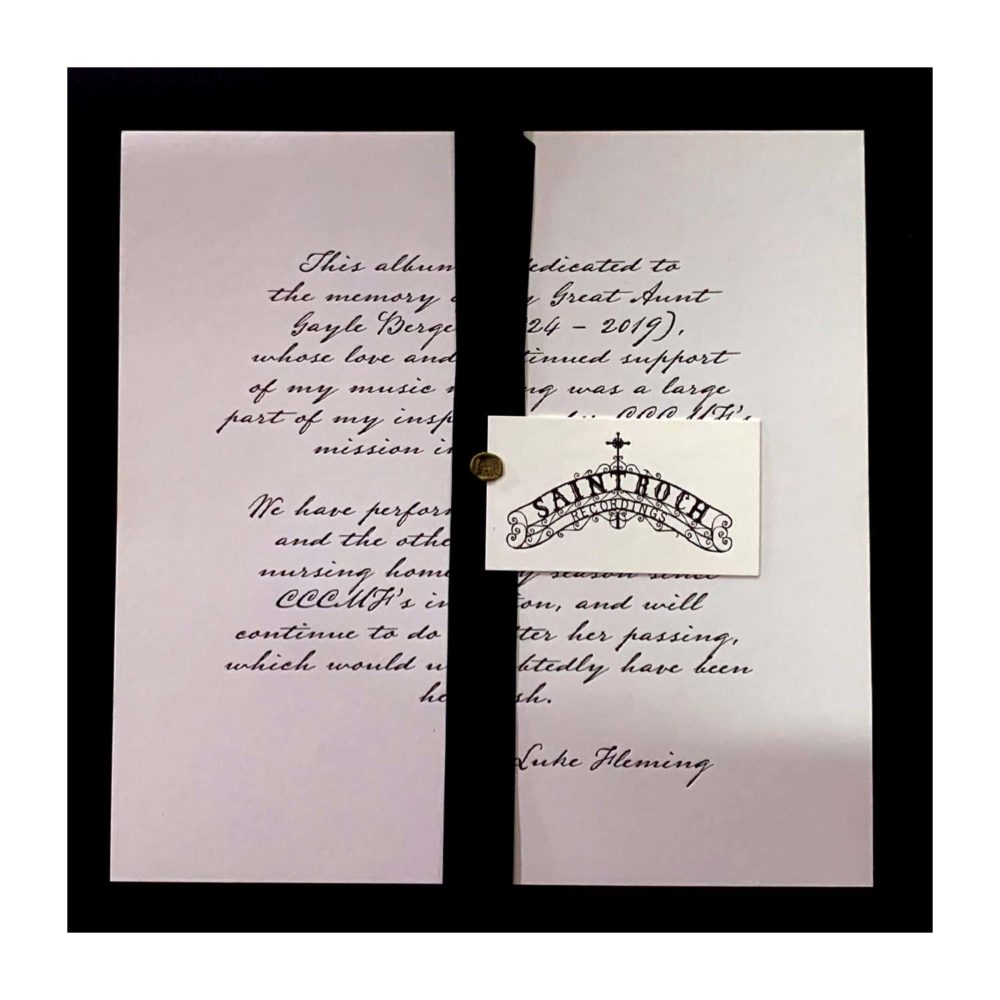 This album dedicated to
the memory Great Aunt
Gayle Berge 24 – 2019),
whose love and tinued support
of my music ng was a large
part of my insp CCCMF's
mission in
SAINT ROCH
RECORDINGS
We have perfor
and the othe
nursing home y season since
CCCMF's in on, and will
continue to do ter her passing,
which would u btedly have been
he sh.
Luke Fleming